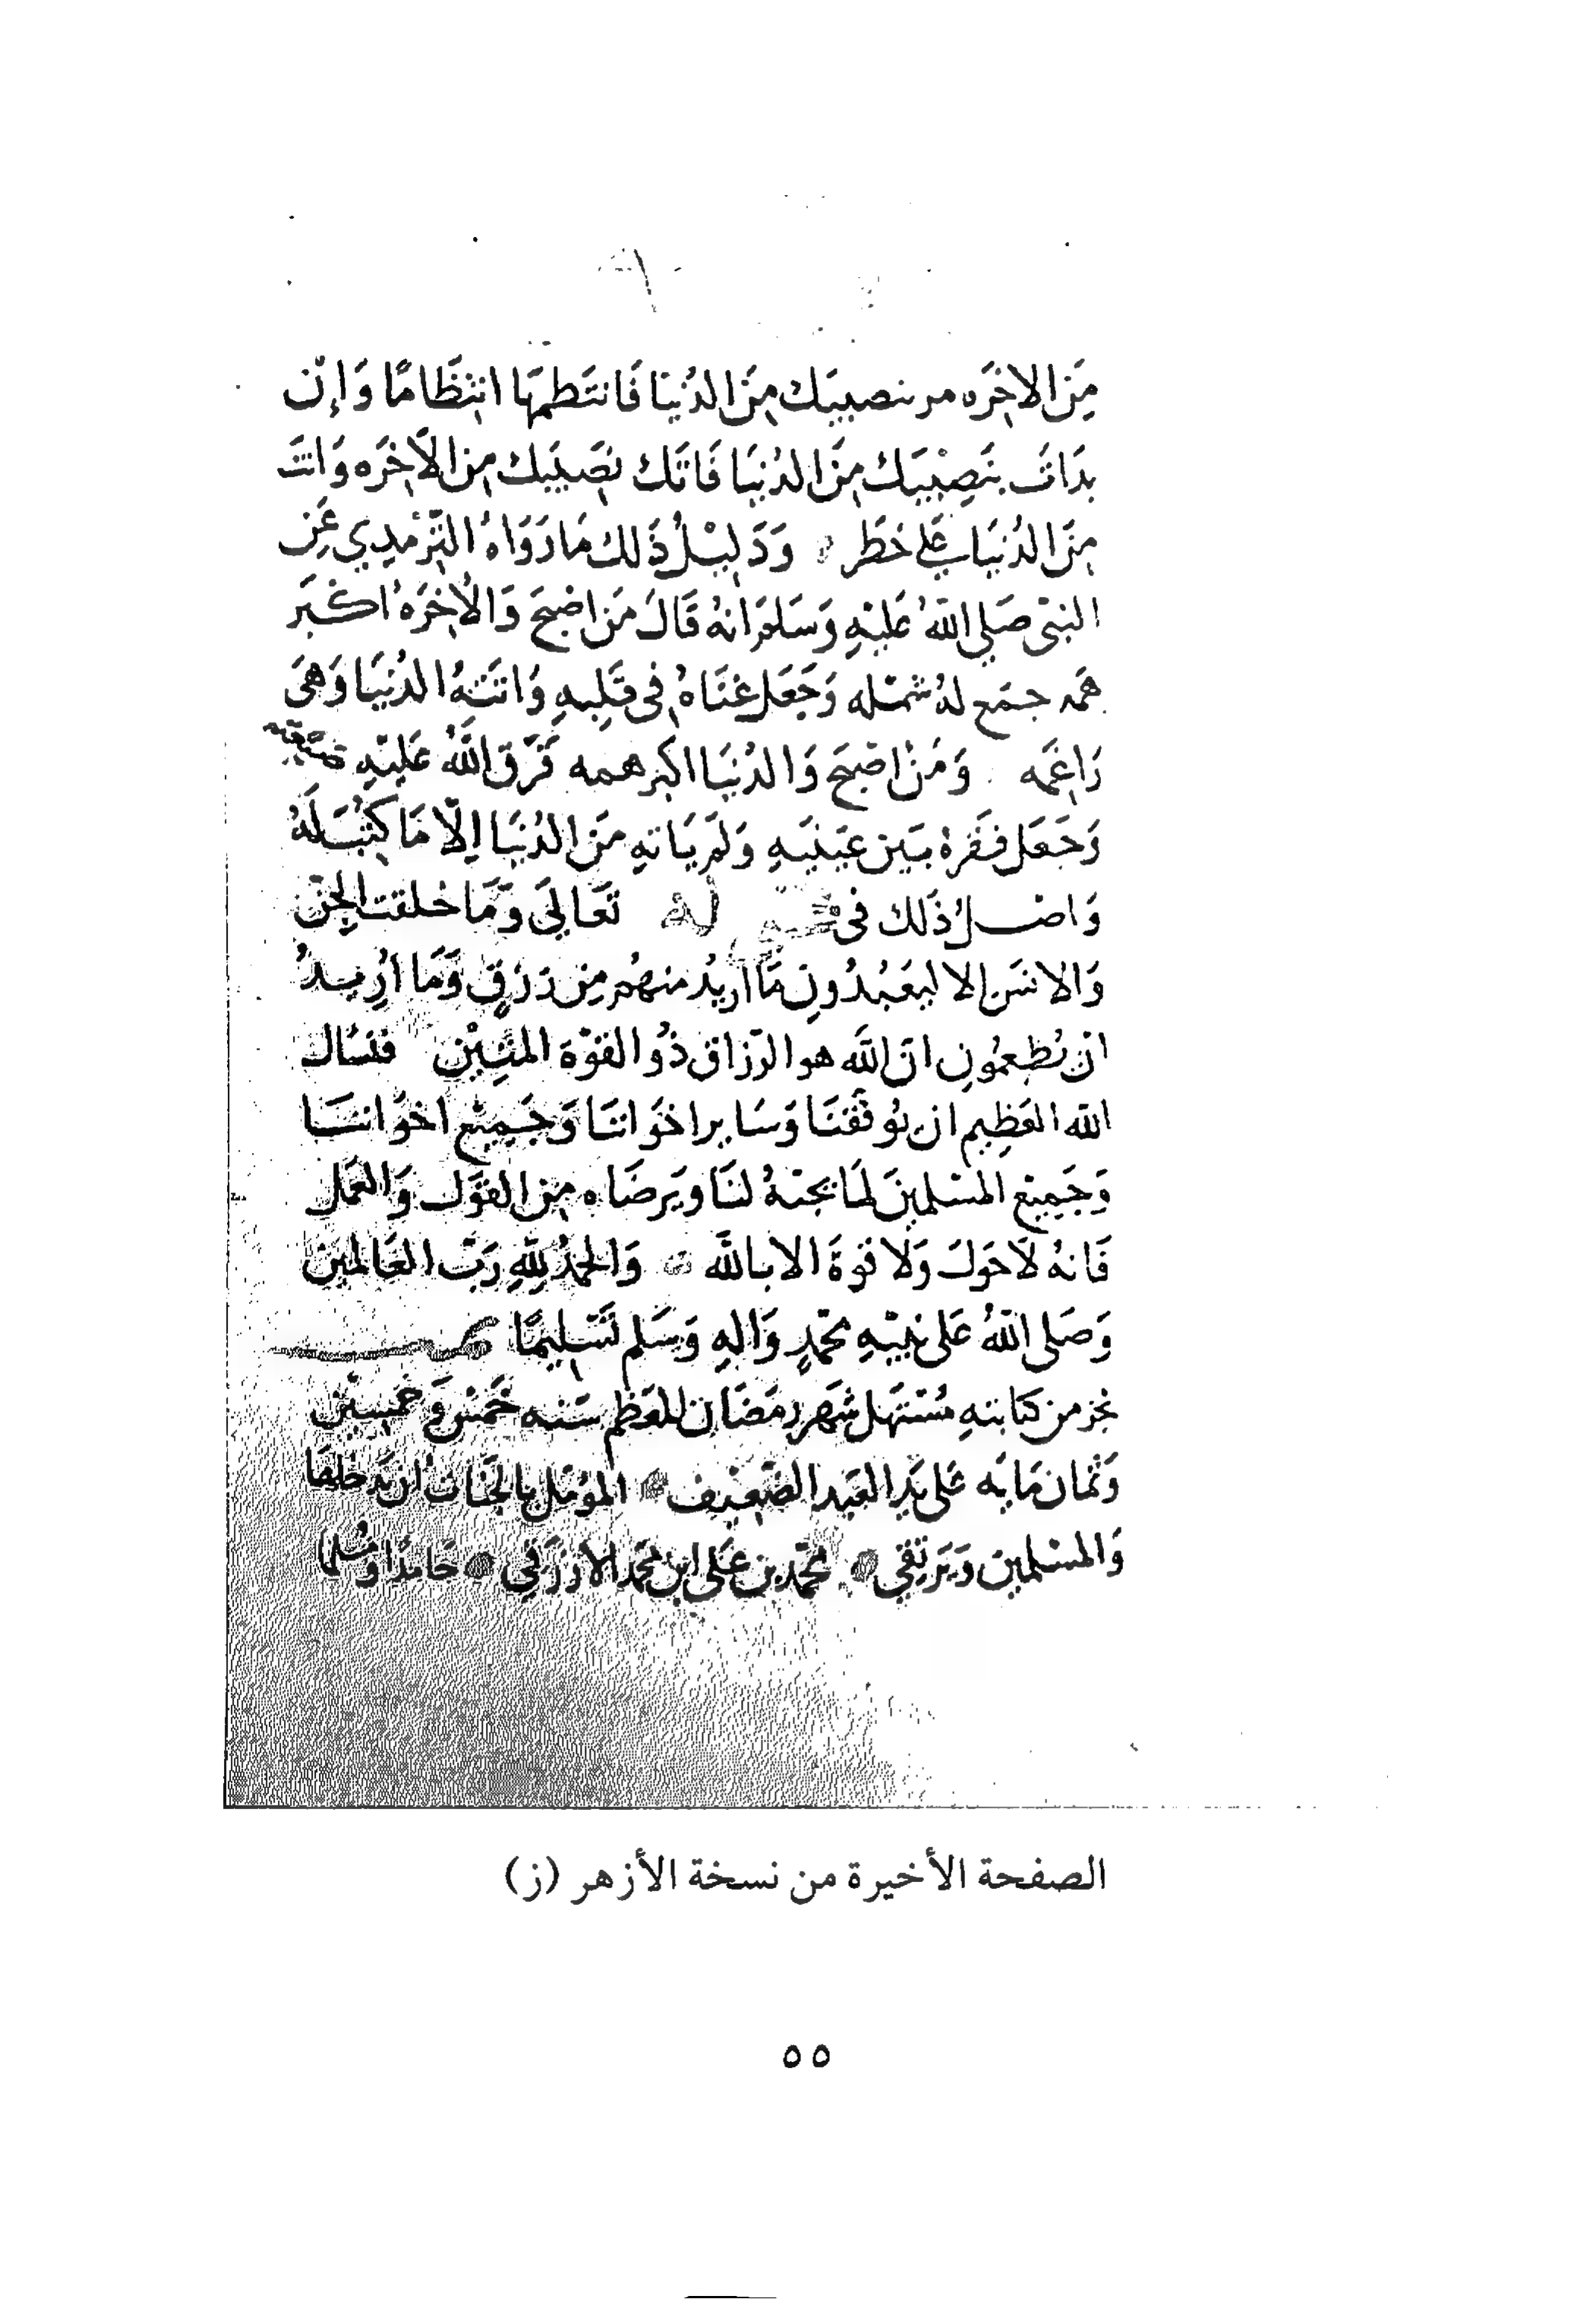 مِنَ الاخِرَه مر بنصيبك مِنَ الدُنيَا فَانتَظمهَا انتِظَامًا وَاِن
بدَات بنَصِيْبِكَ مِنَ الدُنيَا فَاتَك نصَيبك مِن الآخِرَه وَانتَ
مِنَ الدُنيَا عَلى خطَر وَدَلِيْلُ ذَلك مَا رَوَاهُ التِّرمْدِي عَنِ
النبى صَلى اللهُ عَليْهِ وَسَلم انهُ قَالَ مَن اصْبحَ وَالاخِرَهُ اكبَر
همه جمَع لهُ شمله وَجَعَل غنَاهُ فِى قَلبِهِ وَاتَتهُ الدُنيَا وَهىَ
رَاغِمَه وَمَنْ اصْبحَ وَالدُنيَا اكبر همه فَرَّق اللهُ عَليْهِ ضيعته
وَجَعَل فقرهُ بَين عَينَيهِ وَلم يَاتهِ مِنَ الدُنيَا اِلّا مَا كُتبَ لَهُ
وَاصلُ ذَلك فى قوله تعَالى وَمَا خلقت الجن
وَالانسَ الا ليَعبُدُونِ مَا اريدُ منهم مِن رزقٍ وَمَا اُرِيدُ
ان يُطعِمُونِ ان اللّه هوالرّزاق ذُو القوّة المتِيْن فنسَال
الله العَظِيم ان يُوفقنَا وَسَاير اخوَاننَا وَجَميْع اخوَاننَا
وَجَميْع المسْلمينَ لمَا يحبّهُ لنَا ويَرضَاه مِن القوَل وَالعمَل
فَانهُ لَا حَولَ وَلا قوةَ الا باللّه وَالحمدُ للهِ رَبّ العَالمين
وَصَلى اللهُ عَلى نبيّهِ محمّدٍ وَالِهِ وَسَلم تَسْليمًا
نجز من كتابتهِ مُسْتهَل شَهر رمَضَان المعَظم سَنه خمْس وَخمسيْن
وَثمان مَايه عَلى يَد العَبد الضّعِيف المؤمّل بالجنات ان يَدخلهَا
وَالمسْلمينَ وَيَرتقي محمّد بن عَلى ابن محمد الازرَقي حَامدًا وَمُسلما
الصفحة الأخيرة من نسخة الأزهر (ز)
٥٥